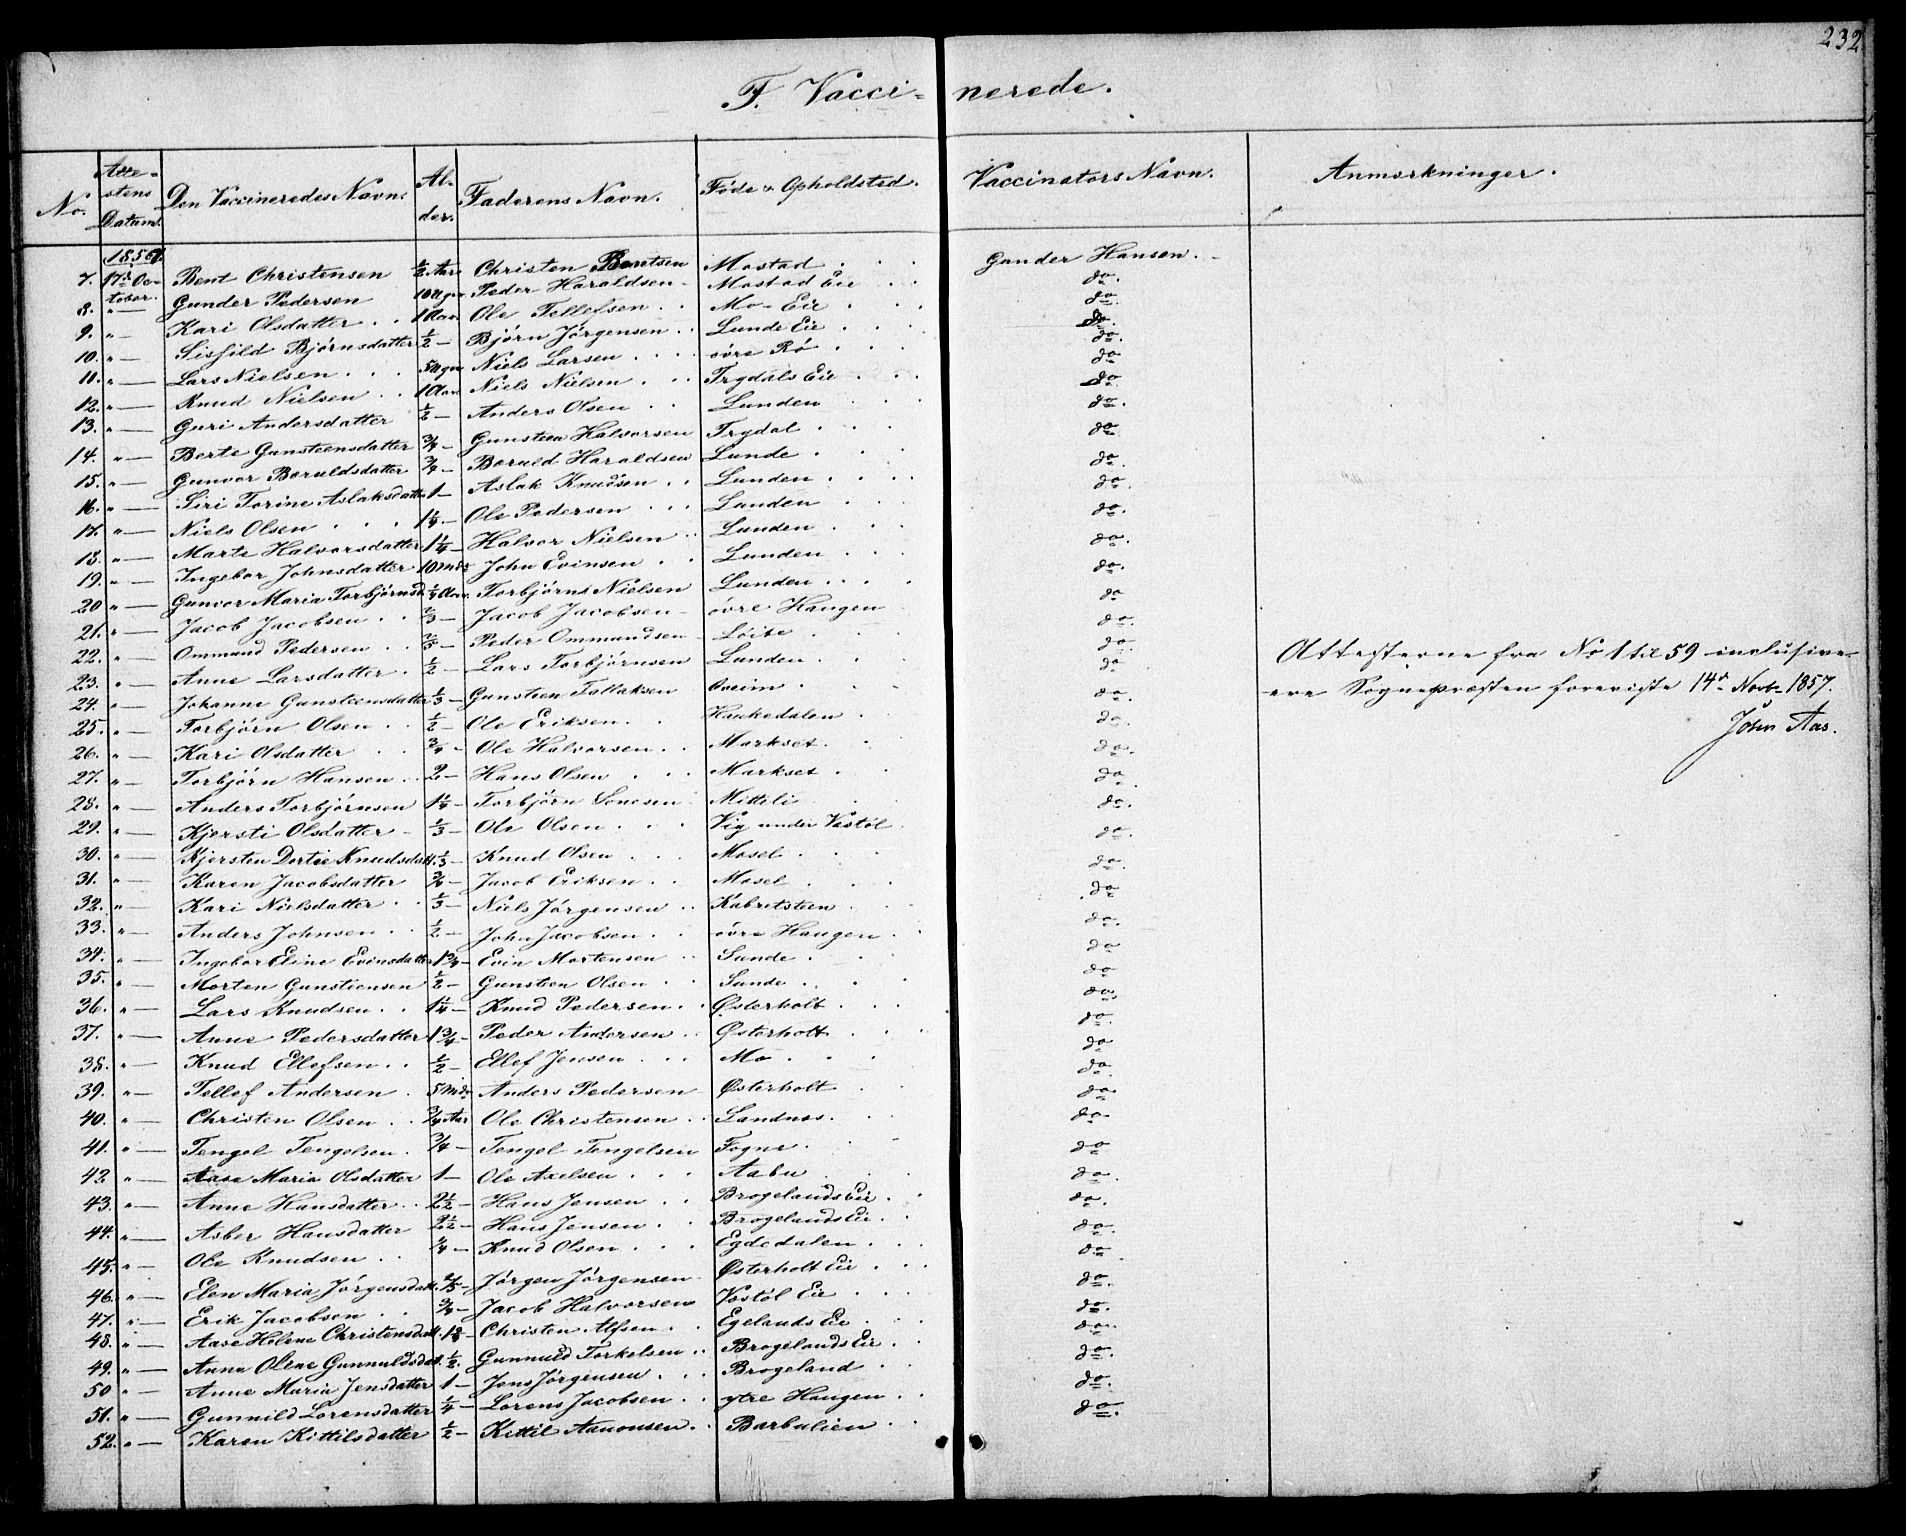 232
F. Vaccinerede.
No. Attestens Datum. Den Vaccineredes Navn. Alder. Faderens Navn. Føde & Opholdsted. Vaccinators Navn. Anmærkninger.
1856
7. 17de October. Bent Christensen ½ Aar Christen Bentsen Mostad Gunder Hansen.
8. " — Gunder Pedersen 10 Ugr Peder Haraldsen Mostad Eie do.
9. " — Kari Olsdatter 1 Aar Ole Tellefsen Mo Eie do.
10. " — Sisfild Bjørnsdatter ½ — Bjørn Jørgensen Lunde Eie do.
11. " — Lars Nielsen 5 Ugr Niels Larsen øvre Rø do.
12. " — Knud Nielsen 1 Aar Niels Nielsen Trydals Eie do.
13. " — Guri Andersdatter ½ — Anders Olsen Lunden do.
14. " — Berte Gunsteensdatter ¾ — Gunsteen Halvorsen Trydal do.
15. " — Gunvor Boruldsdatter ¾ — Boruld Haraldsen Lunde do.
16. " — Siri Torine Aslaksdatter 1 — Aslak Knudsen Lunden do.
17. " — Niels Olsen 1¼ — Ole Pedersen Lunden do.
18. " — Marte Halvorsdatter 1¼ — Halvor Nielsen Lunden do.
19. " — Ingebor Johnsdatter 10 Mdr John Evinsen Lunden do.
20 " — Gunvor Maria Torbjørnsd. Aar. Torbjørn Nielsen Lunden do
21. " — Jacob Jacobsen ⅔ — Jacob Jacobsen øvre Haugen do.
22. " — Ommund Pedersen Peder Ommundsen Løite do.
23. " — Anne Larsdatter ½ — Lars Torbjørnsen Lunden do
24. " — Johanne Gunsteensdatter ⅓ — Gunsteen Tallaksen Oveim do.
25. " — Torbjørn Olsen ½ — Ole Eriksen Haukedalen do.
26. " — Kari Olsdatter ¾ — Ole Halvorsen Markset do.
27. " — Torbjørn Hansen 2 — Hans Olsen Markset do.
28. " — Anders Torbjørnsen 1¼ — Torbjørn Sonesen Mitteli do.
29. " — Kjersti Olsdatter ⅓ — Ole Olsen Vig under Vestøl do.
30. " — Kjersten Dortie Knudsdatt. ⅓ — Knud Olsen Mosel do.
31. " — Karen Jacobsdatter Jacob Eriksen Mosel do.
32. " — Kari Nielsdatter ⅓ — Niels Jørgensen Kabretsteen do.
33. " — Anders Johnsen ½ — John Jacobsen øvre Haugen do.
34. " — Ingebor Eline Evinsdatter 1¾ — Evin Mortensen Sunde do
35. " — Morten Gunstensen ½ — Gunsten Olsen Sunde do.
36. " — Lars Knudsen 1¼ — Knud Pedersen Østerholt do.
37. " — Anne Pedersdatter 1¾ — Peder Andersen Østerholt do.
38. " — Knud Ellefsen ½ — Ellef Jensen Mo do
39. " — Tellef Andersen 5 Mdr Anders Pedersen Østerholt do.
40. " — Christen Olsen ¾ Aar Ole Christensen Landnes do.
41. " — Tengel Tengelsen ¾ — Tengel Tengelsen Fogne do
42 " — Aase Maria Olsdatter 1 — Ole Axelsen Aabu do.
43. " — Anne Hansdatter 2½ — Hans Jensen Brogelands Eie do.
44. " — Asber Hansdatter 2½ — Hans Jensen Brogelands Eie do.
45. " — Ole Knudsen ¼ — Knud Olsen Egdedalen do.
46. " — Elen Maria Jørgensdatt. ⅖ — Jørgen Jørgensen Østerholt Eie do.
47. " — Erik Jacobsen ¾ — Jacob Halvorsen Vestøl Eie do.
48. " — Aase Helene Christensdatt. Christen Alfsen Egelands Eie do.
49. " — Anne Olene Gunnuldsdat. ½ Gunnuld Torkelsen Brogelands Eie do.
50 " — Anne Maria Jensdatter 1 — Jens Jørgensen Brogeland do.
51. " — Gunnild Lorensdatter ¼ — Lorens Jacobsen ytre Haugen do.
52. " — Karen Kittilsdatter ½ — Kittil Aanonsen Barbulien
Attesterne fra No 1 til 59 inclusive
ere Sognepræsten foreviste 14de Novbr 1857.
John Aas.